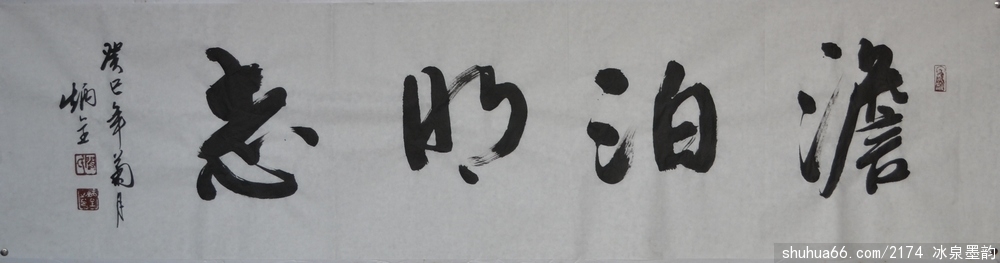 澹泊明志
癸巳年菊月
炳全
shuhua66.com/2174 冰泉墨韵